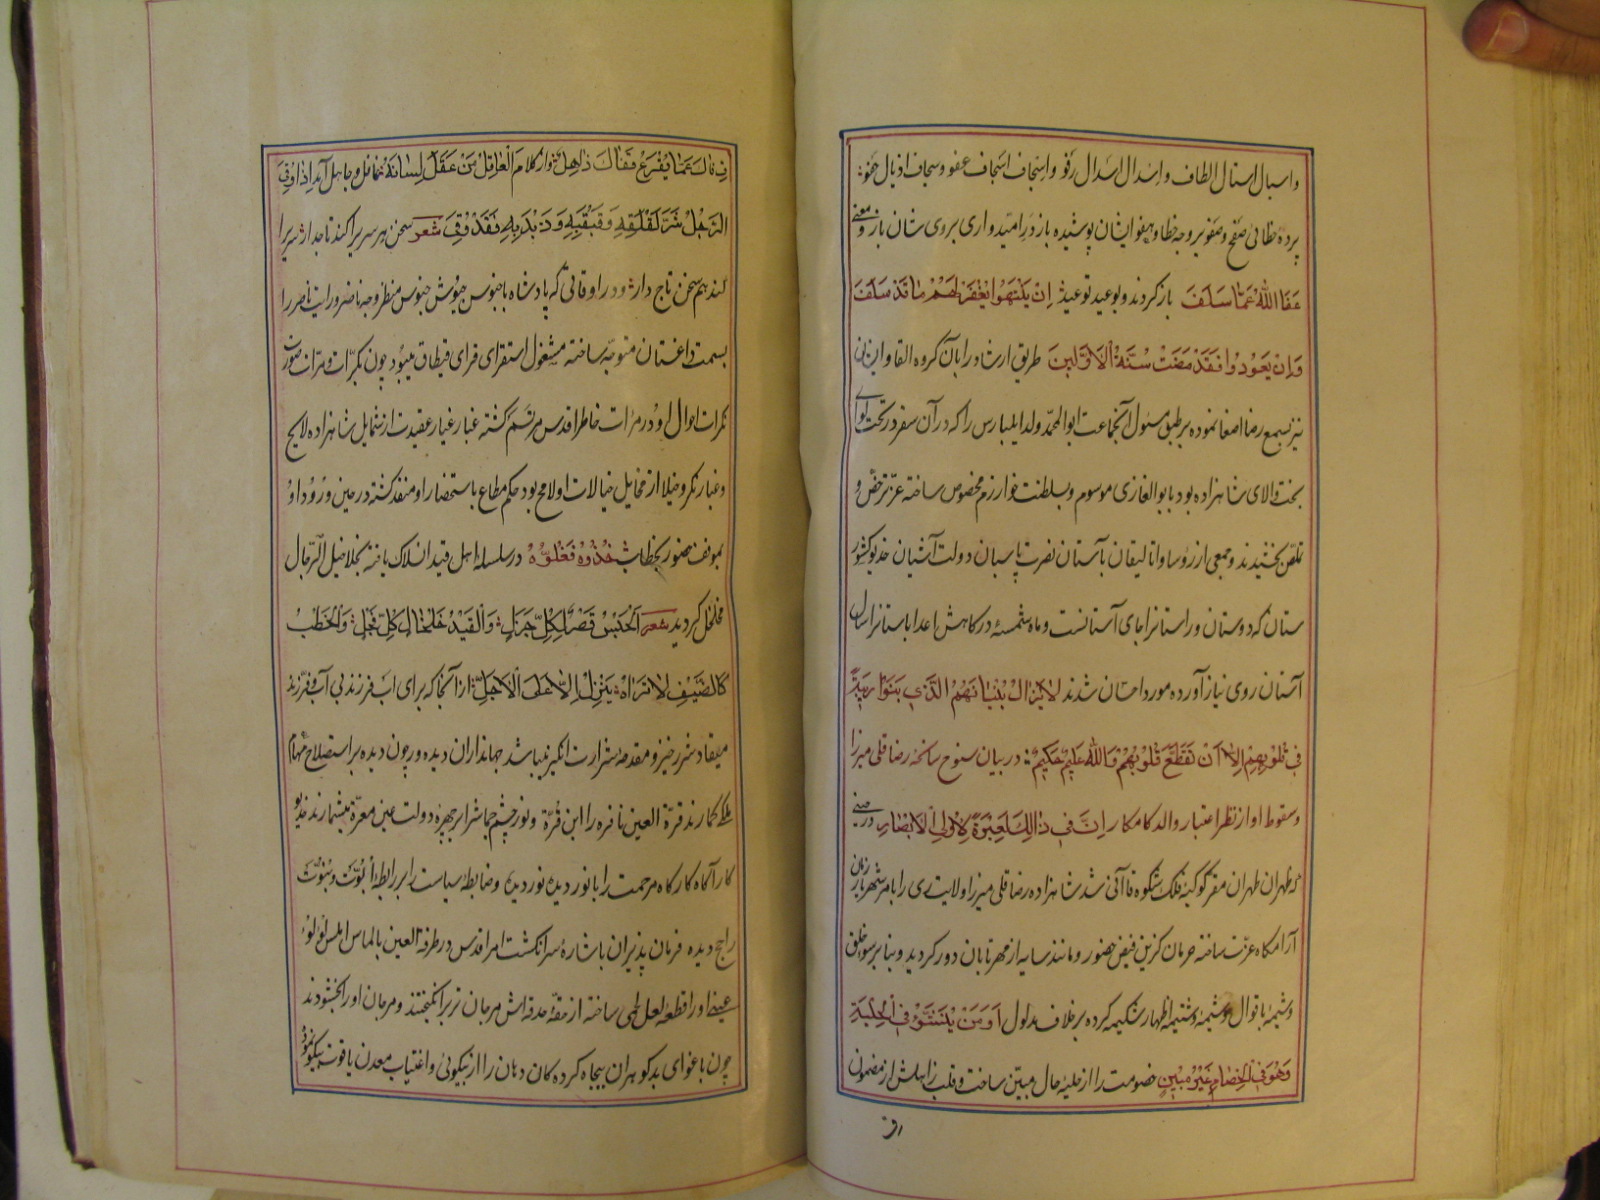 و اسبال استال الطاف و اسدال اسدال رفو و اسجاف اسجاف عفو و سجاف اذیال هفو
پرده خطائی صفح و صفو بر وجه خطا و هفو ایشان پوشیده باز در امیدواری بروی شان باز و معنی
عَفَا اللهُ عَمَّا سَلَفَ باز کردند و بوعید توعید اِنْ یَنْتَهُوا یُغْفَرْ لَهُمْ مَا قَدْ سَلَفَ
وَاِنْ یَعُودُوا فَقَدْ مَضَتْ سُنَّةُ الْاَوَّلِینَ طریق ارشاد را بآن گروه القا و ایشان
نیز بسمع رضا اصغا نموده بر طبق سئول آنجماعت ابو المحمد ولد ایلبارس را که در آن سفر در تحت لوای
بخت والای شاهزاده بود بابو الغازی موسوم و بسلطنت خوارزم مخصوص ساخته عز ترخص و
تلقن بخشیدند و جمعی از رؤسا و اتالیقان بآستان نصرت پاسبان دولت آشیان خدیو کشور
ستان که دوستان و راستانرا جای آسانست و ماه شمسهٔ در کاهش اعدا باستانرا سان
آستان روی نیاز آورده مورد احسان شدند لَا یَزَالُ بُنْیَانُهُمُ الَّذِی بَنَوْا رِیبَةً
فِی قُلُوبِهِمْ اِلَّا اَنْ تَقَطَّعَ قُلُوبُهُمْ وَاللهُ عَلِیمٌ حَکِیمٌ در بیان سنوح سانحهٔ رضا قلی میرزا
و سقوط او از نظر اعتبار والد کامکار اِنَّ فِی ذٰلِکَ لَعِبْرَةً لِاُولِی الْاَبْصَارِ در حینی
که ظهران طهران مقر کوکبهٔ فلک شکوه قاآنی شد شاهزاده رضا قلی میرزا ولایت ری را بامر شهریار زمان
آرامگاه عزت ساخته حرمان گزین فیض حضور و مانند سایه از مهر تابان دور گردید و بنا بر سوء خلق
و شیمهٔ باقوال وشیمه و شتیمه اظهار شکیمه کرده بر خلاف مدلول اَوَمَنْ یُنَشَّؤُ فِی الْحِلْیَةِ
وَهُوَ فِی الْخِصَامِ غَیْرُ مُبِینٍ خصومت را از حلیهٔ حال مبین ساخت و قلب زاهلش از مضمون
فَقَالَ ذَاهِلٌ و از کلام الْعَاقِلُ مَنْ عَقَلَ لِسَانَهُ غافل و جاهل آمد اِذَا وُقِیَ
الرَّجُلُ شَرَّ لَقْلَقِهِ وَ قَبْقَبِهِ وَ ذَبْذَبِهِ فَقَدْ وُقِیَ شعر سخن هر سریرا کند تاجدار سریرا
کند هم سخن تاج دار در اوقاتی که پادشاه با خبوس جیوش خبوس منظر وجه ناضر و رایت ناصر را
بسمت داغستان متوجه ساخته مشغول استقرای قرای قیطاق میبود چون بکرات و مرات صورت
نکرات احوال او در مرآت خاطر اقدس مرتسم گشته غبار غیار عقیدت از شمایل شاهزاده لایح
و غبار تکبر و خیلا از مخایل خیالات او لامح بود حکم مطاع باستحضار او منفذ گشته در حین ورود او
بموقف حضور بخطاب خُذُوهُ فَغُلُّوهُ در سلسلهٔ اهل قید انسلاک یافته بخلاخیل الرجال
مخلخل گردید شعر اَلْحَبْسُ قَصْرٌ لِکُلِّ جَزَلٍ وَالْقَیْدُ خَلْخَالُ کُلِّ فَحْلٍ وَالْخَطْبُ
کَالضَّیْفِ لَا تَرَاهُ یَنْزِلُ اِلَّا عَلَی الْاَجَلِّ از آنجا که برای اب فرزند بی آب و فرزند
میقاد شرر خیز و مقدمهٔ شرارت انگیز میباشد جهانداران دیده ور چون دیده بر استصلاح مهام
ملک گمارند قرة العین نافره را ابن قرة و نور چشم جماش را بر چهرهٔ دولت عین معرة میشمارند خدیو
کارآگاه کارگاه مرحمت را با نور دیده نوردیده و ضابطهٔ سیاست را بر رابطهٔ اُبُوَّت و بُنُوَّت
راجح دیده فرمان پذیران باشارهٔ سر انگشت امر اقدس در طرفة العین بالماس املس لؤلؤ
عینی او را قطعهٔ لعل لحمی ساخته از حقهٔ حدقه اش مرجان تر برانگیختند و مرجان او را بخشودند
چون باغوای بدگوهران بیجاده کرده کان دهان را از نیکوئی و اغتیاب معدن یاقوت نیکو نمود